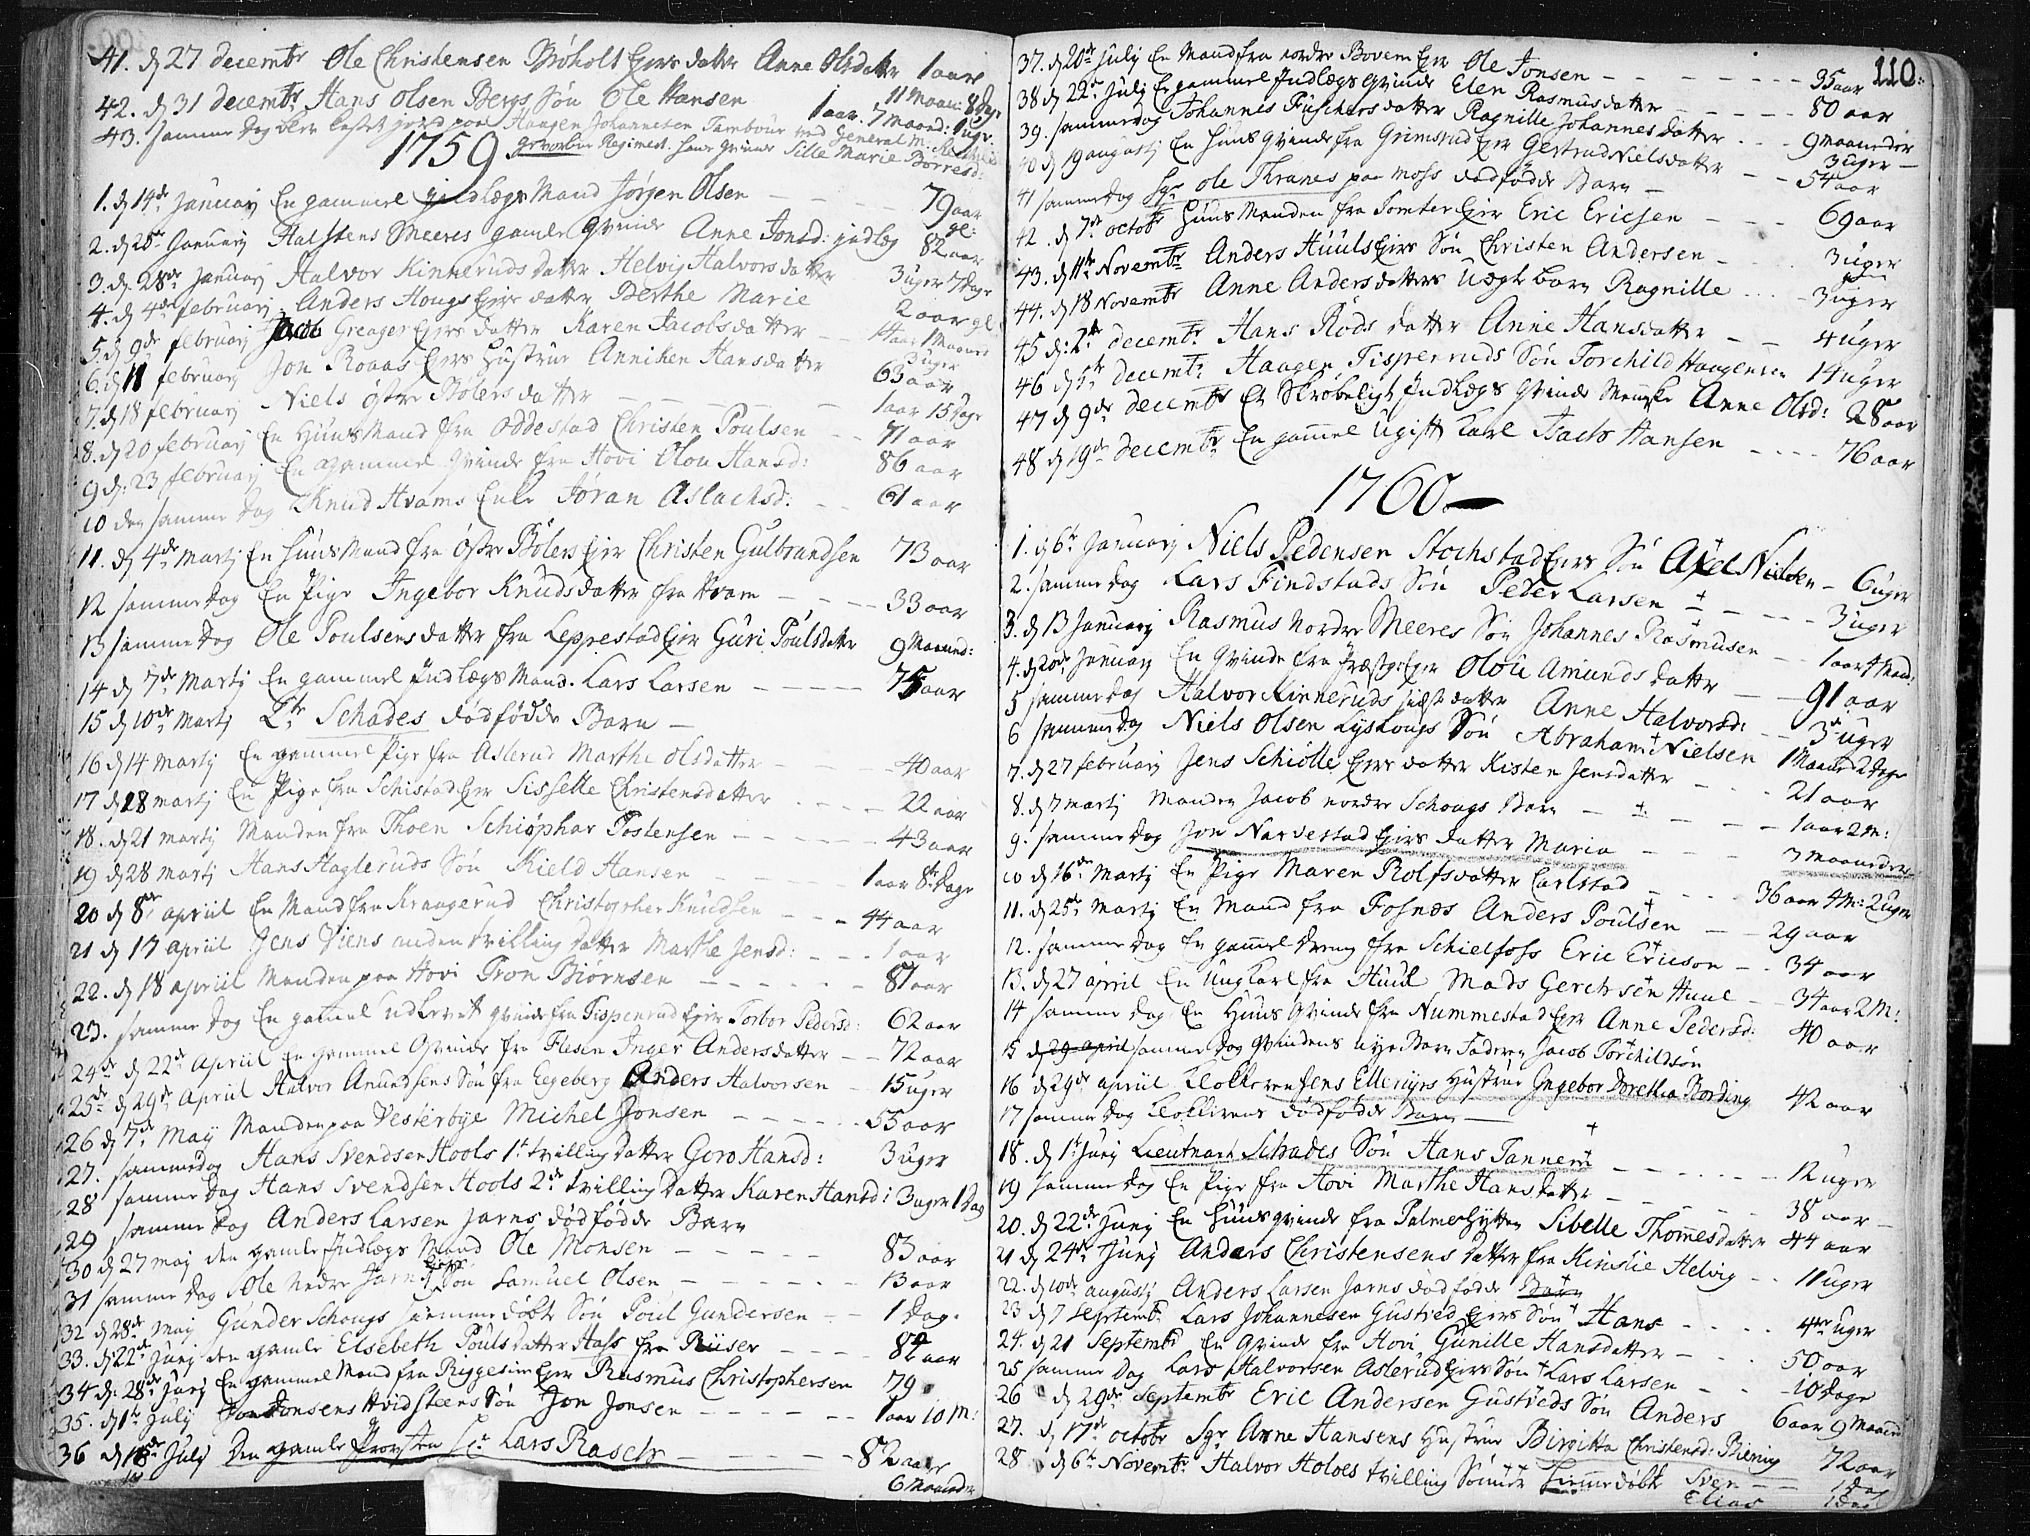 41. d 27 decembr Ole Christensen Brøholt Ejers datter Anne Olsdatter 1 aar
11 Maan: 8 dag:
42. d 31 decembr Hans Olsen Bergs Søn Ole Hansen 1 aar. 7 Maaned: 1 uge.
43. samme dag blev kastet jord paa Haagen Johannesen Tambour ved General M:
Regiment. hans qvinde Sille Marie Børresd:
1759
1. d 14de Januarij En gammel jndlægs Mand Jørgen Olsen 79 aar
2. d 25de Januarij Halstens Meeres gamle Qvinde Anne Jonsd: jndleg 82 aar
3. d 28de Januarij Halvor Kinneruds datter Helvig Halvorsdatter 3 uger 7 dage
4. d 4de februarij Anders Hougs Ejers datter Berthe Marie 2 aar gl:
5. d 9de februarij Jacob Greager Ejers datter Karen Jacobsdatter 14 aar 1 Maaned
3 uger
6. d 11 februarij Jon Roaas Ejers Hustrue Anniken Hansdatter 63 aar
7. d 18 februarij Niels Østre Bølers datter 1 aar 15 dage
8. d 20 februarij En Huus Mand fra Oddestad Christen Poulsen 71 aar
9 d: 23 februarij En gammel Qvinde fra Hovi Olou Hansd: 86 aar
10 den samme dag Knud Hvams Enke Jøran Aslachsd: 61 aar
11. d 4de Martj En huus Mand fra Østre Bølers Ejer Christen Gulbrandsen 73 aar
12 samme dag En Pige Ingebor Knudsdatter fra Hvam 33 aar
13 samme dag Ole Poulsens datter fra Leppestad Ejer Guri Poulsdatter 9 Maaned:
14 d 7de Martj En gammel Jndlægs Mand. Lars Larsen 75 aar
15 d 10de Martj Lt: Schades dødfødde Barn
16 d 14 Martj En gammel Pige fra Aslerud Marthe Olsdatter 40 aar
17 d 28 martj En Pige fra Schistad Ejer Sisselle Christensdatter 22 aar
18. d 21 martj Manden fra Thoen Schiøphar Tostensen 43 aar
19 d 28 martj Hans Hagleruds Søn Kield Hansen 1 aar 8te dage
20 d 8de apriil En Mand fra Kraagerud Christopher Knudsen 44 aar
21 d 17 apriil Jens Viens anden tvilling datter Marthe Jensd: 1 aar
22. d 18 apriil Manden paa Hovi Tron Biørnsen 81 aar
23. samme dag En gammel udlevet qvinde fra Tispenrud Ejer Torbor Pedersd: 62 aar
24de d 22de Apriil En gammel Qvinde fra Flesen Inger Andersdatter 72 aar
25de d 29de Apriil Halvor Amundsens Søn fra Egeberg Anders Halvorsen 15 uger
26 d 7de May Manden paa Vesterbye Michel Jonsen 55 aar
27. samme dag Hans Svendsen Hools 1te tvilling datter Goro Hansd: 3 uger
28 samme dag Hans Svendsen Hools 2de tvilling datter Karen Hansd: 3 uger 1 dag
29 samme dag Anders Larsen Jarns dødfødde Barn
30 d 27 maj den gamle Jndlægs Mand Ole Monsen 83 aar
31 samme dag Ole Nedre Jarns Søn Samuel Olsen 13 aar
32 d 28de maj Gunder Schougs hjemmedøbt Søn Poul Gundersen 1 dag.
33. d 22de Junj den gamle Elsebeth Poulsdatter Hass fra Riiser 82 aar
34 d: 28de Junj En gammel Mand fra Ryggesin Ejer Rasmus Christophersen 79
35. d 1te Julij Jon Jonsens Hvidsteens Søn Jon Jonsen 1 aar 10 M:
36 d 18de Julij Den gamle Provsten Hr Lars Rasch 82 aar
6 Maaneder
110:
37. d 20de Julij En Mand fra nordre Boven Ejer Ole Jonsen 35 aar
38 d 22de Julij En gammel Jndlægs Qvinde Elen Rasmusdatter 80 aar
39. samme dag Johannes Fuschers datter Ragnille Johannesdatter 9 Maaneder
3 uger
40 d 19 augustj En huus Qvinde fra Grimsrud Ejer Gertrud Nielsdatter 54 aar
41 samme dag Sgr Ole Thranes paa Moss dødfødde Barn
42. d 7de octobr Huus Manden fra Tomter Ejer Eric Ericsen 69 aar
43. d 11te Novembr Anders Huuls Ejers Søn Christen Andersen 3 uger
44. d 18 Novembr Anne Andersdatters Uægte barn Ragnille 3 uger
45 d: 2de decembr Hans Røds datter Anne Hansdatter 4 uger
46 d 5te decembr Haagen Tispenruds Søn Torchild Haagensen 14 uger
47 d 9de decembr Et Skrøbeligt Jndlægs Qvinde Menniske Anne Olsd: 28 aar
48 d 19de decembr En gammel Ugift Karl Jacob Hansen 76 aar
1760
1. d 6te Januarij Niels Pedersen Stochstad Ejers Søn Axel Nielsen 6 uger
2. samme dag Lars Findstads Søn Peder Larsen 3 uger
3. d 13 Januarij Rasmus Nordre Meeres Søn Johannes Rasmusen 1 aar 4 Maan:
4. d 20de Januarij En Qvinde fra Ejer Olou Amundsdatter 91 aar
5 samme dag Halvor Kinneruds sidste datter Anne Halvorsd: 3 uger
6 samme dag Niels Olsen Lyskougs Søn Abraham Nielsen 1 Maaned 2 dage
7. d 27 februarij Jens Schiølle Ejers datter Kisten Jensdatter 21 aar
8. d 7 martj Manden Jacob nordre Schougs Barn 1 aar 2 M:
9. samme dag Jon Narvestad Ejers datter Maria 3 Maaneder
10 d 16de Martj En Pige Maren Rolfsdatter Carlstad 36 aar 4 M: 2 uger
11. d 25de Martj En Mand fra Fosnæs Anders Poulsen 29 aar
12. samme dag En gammel dreng fra Schielfoss Eric Ericson 34 aar
13. d 27 april En Ung Karl fra Huul Mads Gerchsen Huul 34 aar 2 M:
14 samme dag En Huus Qvinde fra Nummestad Ejer Anne Pedersd: 40 aar
15 d 29 april samme dag Qvindens nye Barn Faderen Jacob Torchildsøn
16 d 29de apriil Klokkeren Jens Ellerigers Hustrue Jngebor Dorethea Nording 42 aar
17 samme dag Klokkerens dødfødde Barn
18. d 1te Junij Lieutnant Schades Søn Hans Tanner 12 uger
19 samme dag En Pige fra Hovi Marthe Hansdatter 38 aar
20. d 22de Junij En huus qvinde fra Palmeshytten Sibelle Thomesdatter 44 aar
21 d 24de Junij Anders Christensens datter fra Kinslie Helvig 11 uger
22. d 10de augustj Anders Larsen Jarns dødfødde Barn
23 d 7 Septembr Lars Johannesen Gustved Ejers Søn Hans 4 uger
24. d 21 Septembr En Qvinde fra Hovi Gunille Hansdatter 50 aar
25 samme dag Lars Halvorsen Aslerud Ejers Søn Lars Larsen 10 dage
26 d 29de Septembr Eric Andersen Gustveds Søn Anders 6 aar 9 Maaned
27. d 17de octobr Sgr Arne Hansens Hustrue Birgitta Christensd: Biering 72 aar
28 d 6te Novembr Halvor Holoes tvilling Sønner hiemmedøbte Sven 1 dag
Elias 1 dag